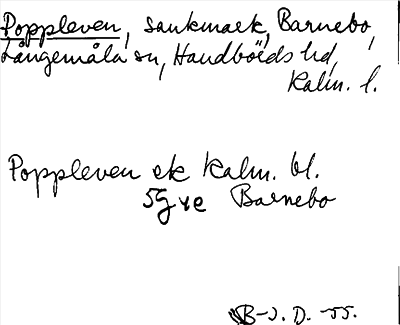 Poppleven, sankmark, Barnebo,
Långemåla sn, Handbörds hd,
Kalm. l.
Poppleven ek Kalm. bl.
5G Barnebo
B-J. D. -55.